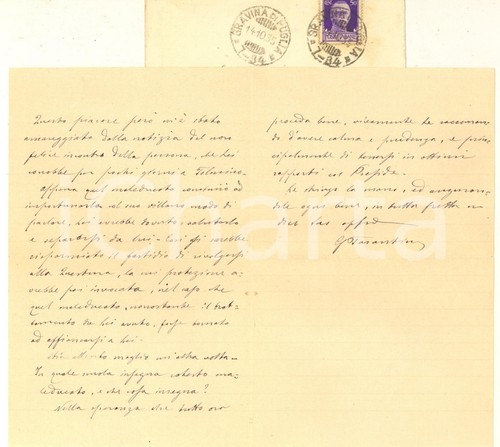 GRAVINA DI PUGLIA
GRAVINA DI PUGLIA
Questo piacere però m'è stato
amareggiato dalla notizia del non
felice incontro della persona, che Lei
conobbe per pochi giorni a
appena quel maleducato cominciò ad
importunarla col suo villano modo di
parlare, Lei avrebbe dovuto salutarlo
e separarsi da lui; Lei si sarebbe
risparmiato il fastidio di rivolgersi
alla Questura, la cui protezione a-
vrebbe poi invocata, nel caso che
quel maleducato, nonostante il trat-
tamento da Lei avuto, fosse tornato
ad affiancarsi a Lei.
Stia attento meglio un'altra volta.
In quale scuola insegna cotesto ma-
leducato, e che cosa insegna?
Nella speranza che tutto ora
proceda bene, vivamente Le raccoman-
do d'avere calma e prudenza, e prin-
cipalmente di tenersi in ottimi
rapporti col Preside.
Le stringo la mano, ed auguran-
dole ogni bene, in tutta fretta mi
dico Suo aff.mo